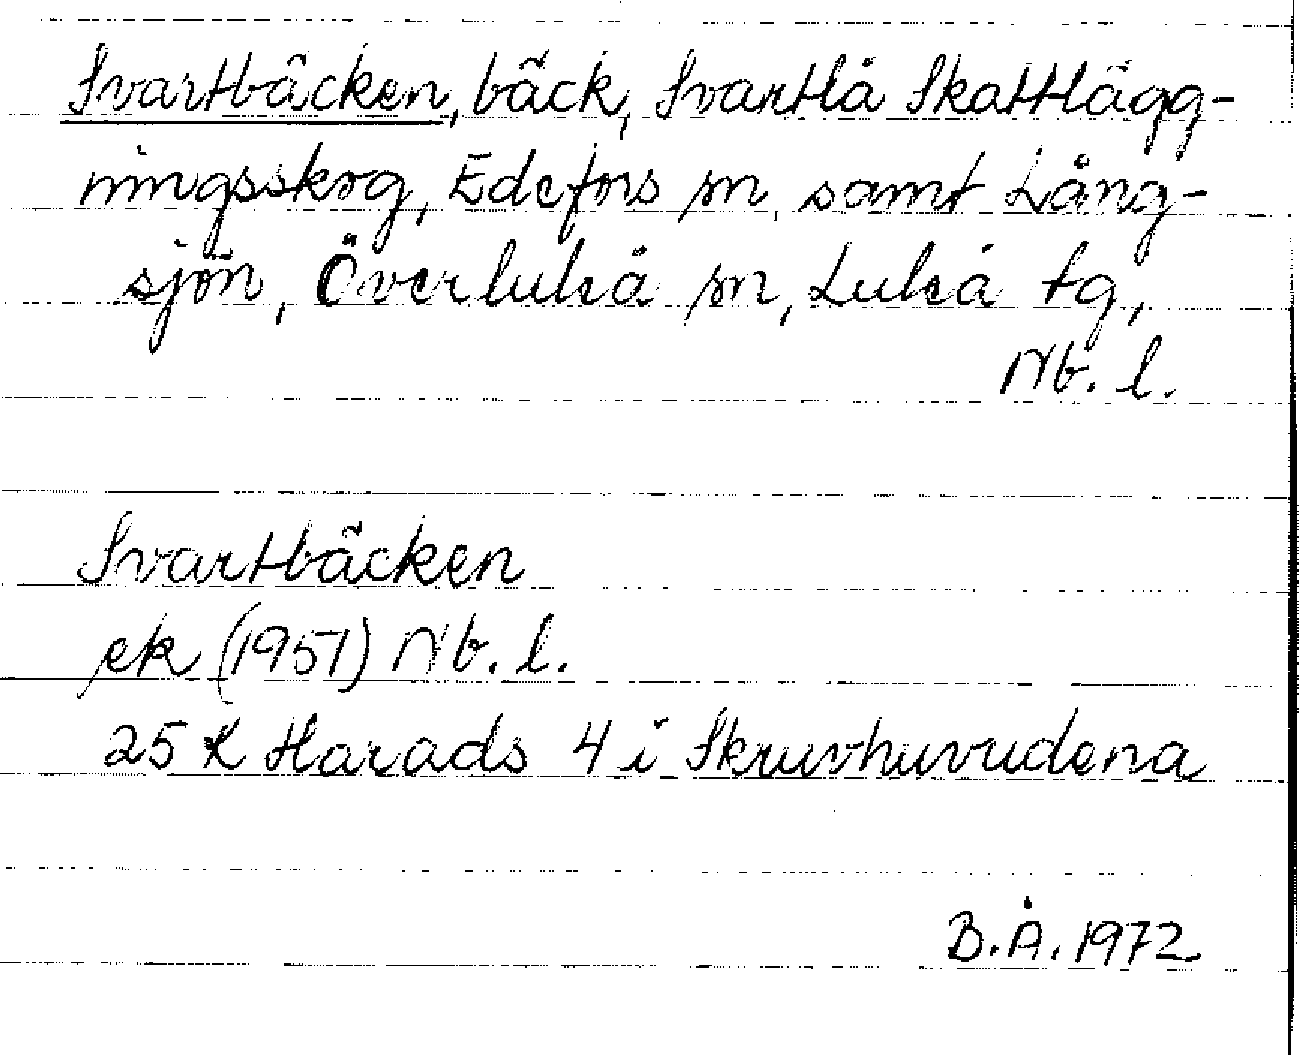 Svartbäcken, bäck, Svartlå Skattlägg-
ningsskog, Edefors sn, samt Lång-
sjön, Överluleå sn, Luleå tg,
Nb. l.
Svartbäcken
ek (1951) Nb. l.
25 K Harads 4 i Skruvhuvudena
B.Å. 1972